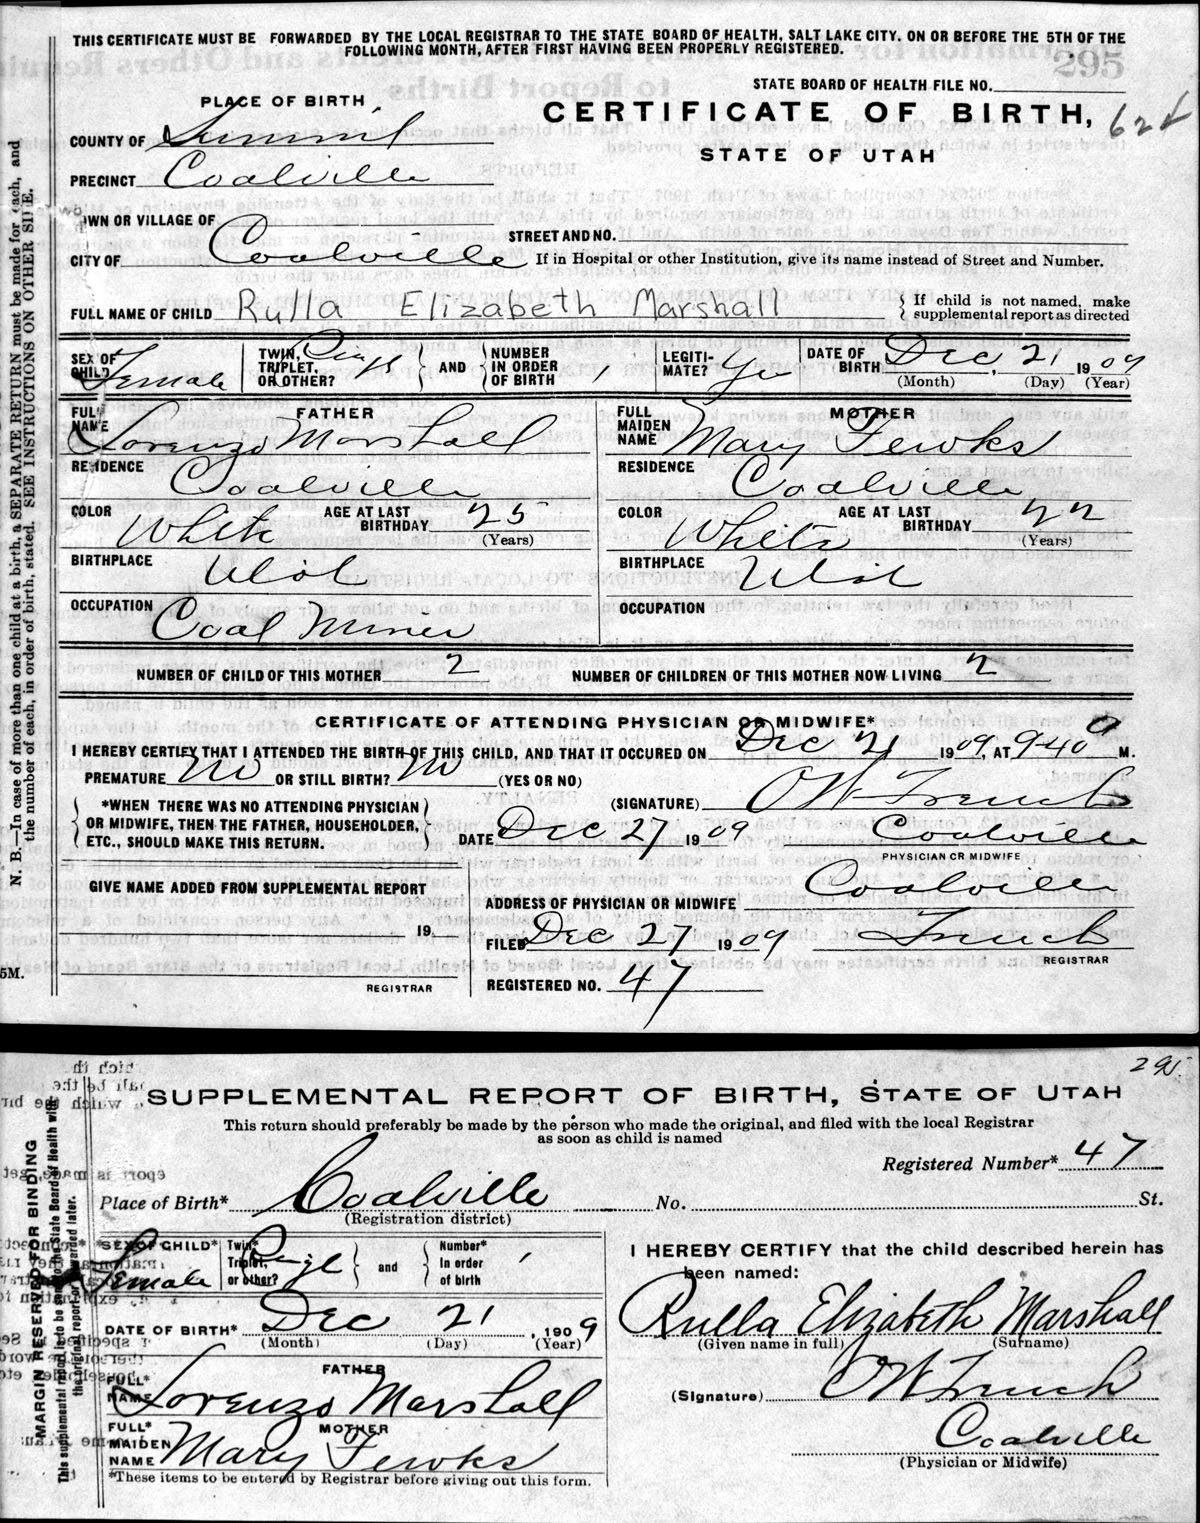 THIS CERTIFICATE MUST BE FORWARDED BY THE LOCAL REGISTRAR TO THE STATE BOARD OF HEALTH, SALT LAKE CITY, ON OR BEFORE THE 5TH OF THE
FOLLOWING MONTH, AFTER FIRST HAVING BEEN PROPERLY REGISTERED.
295
STATE BOARD OF HEALTH FILE NO.
PLACE OF BIRTH
CERTIFICATE OF BIRTH,
STATE OF UTAH
COUNTY OF Summit
PRECINCT Coalville
TOWN OR VILLAGE OF
STREET AND NO.
CITY OF Coalville If in Hospital or other Institution, give its name instead of Street and Number.
FULL NAME OF CHILD Rulla Elizabeth Marshall { If child is not named, make supplemental report as directed
SEX OF CHILD Female TWIN, TRIPLET, OR OTHER? Single AND NUMBER IN ORDER OF BIRTH 1 LEGITI-MATE? Yes DATE OF BIRTH Dec 21 1909
(Month) (Day) (Year)
FATHER MOTHER
FULL NAME Lorenzo Marshall FULL MAIDEN NAME Mary Fewks
RESIDENCE Coalville RESIDENCE Coalville
COLOR White AGE AT LAST BIRTHDAY 25 (Years) COLOR White AGE AT LAST BIRTHDAY 22 (Years)
BIRTHPLACE Utah BIRTHPLACE Utah
OCCUPATION Coal Miner OCCUPATION
NUMBER OF CHILD OF THIS MOTHER 2 NUMBER OF CHILDREN OF THIS MOTHER NOW LIVING 2
CERTIFICATE OF ATTENDING PHYSICIAN OR MIDWIFE*
I HEREBY CERTIFY THAT I ATTENDED THE BIRTH OF THIS CHILD, AND THAT IT OCCURED ON Dec 21 1909, AT 9-40 a M.
PREMATURE No OR STILL BIRTH? No (YES OR NO)
*WHEN THERE WAS NO ATTENDING PHYSICIAN
OR MIDWIFE, THEN THE FATHER, HOUSEHOLDER,
ETC., SHOULD MAKE THIS RETURN.
(SIGNATURE) OW French
DATE Dec 27 1909 Coalville
PHYSICIAN OR MIDWIFE
GIVE NAME ADDED FROM SUPPLEMENTAL REPORT
19
REGISTRAR
ADDRESS OF PHYSICIAN OR MIDWIFE Coalville
FILED Dec 27 1909 French
REGISTRAR
REGISTERED NO. 47
N. B.—In case of more than one child at a birth, a SEPARATE RETURN must be made for each, and
the number of each, in order of birth, stated. SEE INSTRUCTIONS ON OTHER SIDE.
5M.
295
SUPPLEMENTAL REPORT OF BIRTH, STATE OF UTAH
This return should preferably be made by the person who made the original, and filed with the local Registrar
as soon as child is named
Registered Number* 47
Place of Birth* Coalville No. St.
(Registration district)
SEX OF CHILD* Female Twin* Triplet, or other? Single and Number* In order of birth 1
DATE OF BIRTH* Dec 21, 1909
(Month) (Day) (Year)
FATHER
FULL* NAME Lorenzo Marshall
MOTHER
FULL* MAIDEN NAME Mary Fewks
*These items to be entered by Registrar before giving out this form.
I HEREBY CERTIFY that the child described herein has
been named:
Rulla Elizabeth Marshall
(Given name in full) (Surname)
(Signature) OW French
Coalville
(Physician or Midwife)
MARGIN RESERVED FOR BINDING